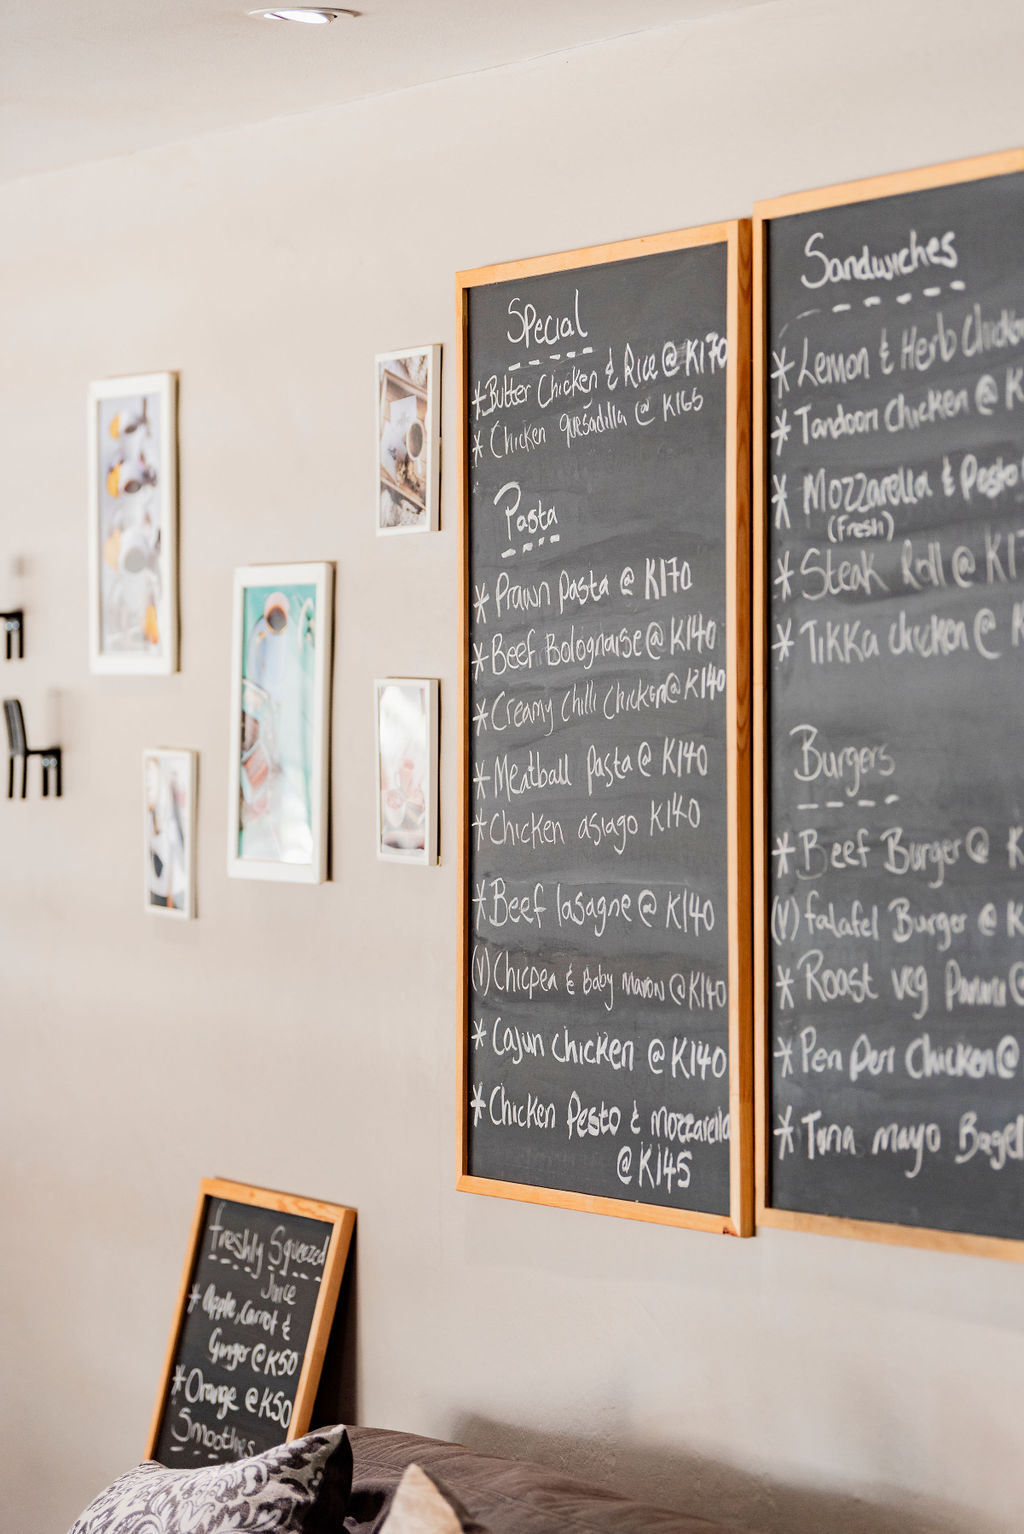 Special
*Butter Chicken & Rice @ K170
* Chicken quesadilla @ K165
Pasta
* Prawn pasta @ K170
*Beef Bolognaise @ K140
*Creamy chilli chicken @ K140
*Meatball pasta @ K140
*Chicken asiago K140
*Beef lasagne @ K140
(V) Chicpea & Baby marow @ K140
* Cajun chicken @ K140
*Chicken Pesto & mozzarella
@ K145
Sandwiches
*Lemon & Herb Chicken
* Tandoori Chicken @ K
* Mozzarella & Pesto
(Fresh)
*Steak Roll @ K17
*Tikka chicken @ K
Burgers
* Beef Burger @ K
(V) falafel Burger @ K
* Roast veg Panini @
*Peri Peri Chicken @
*Tuna mayo Bagel
freshly Squeezed
Juice
* Apple, Carrot &
Ginger @ K50
*Orange @ K50
Smoothies